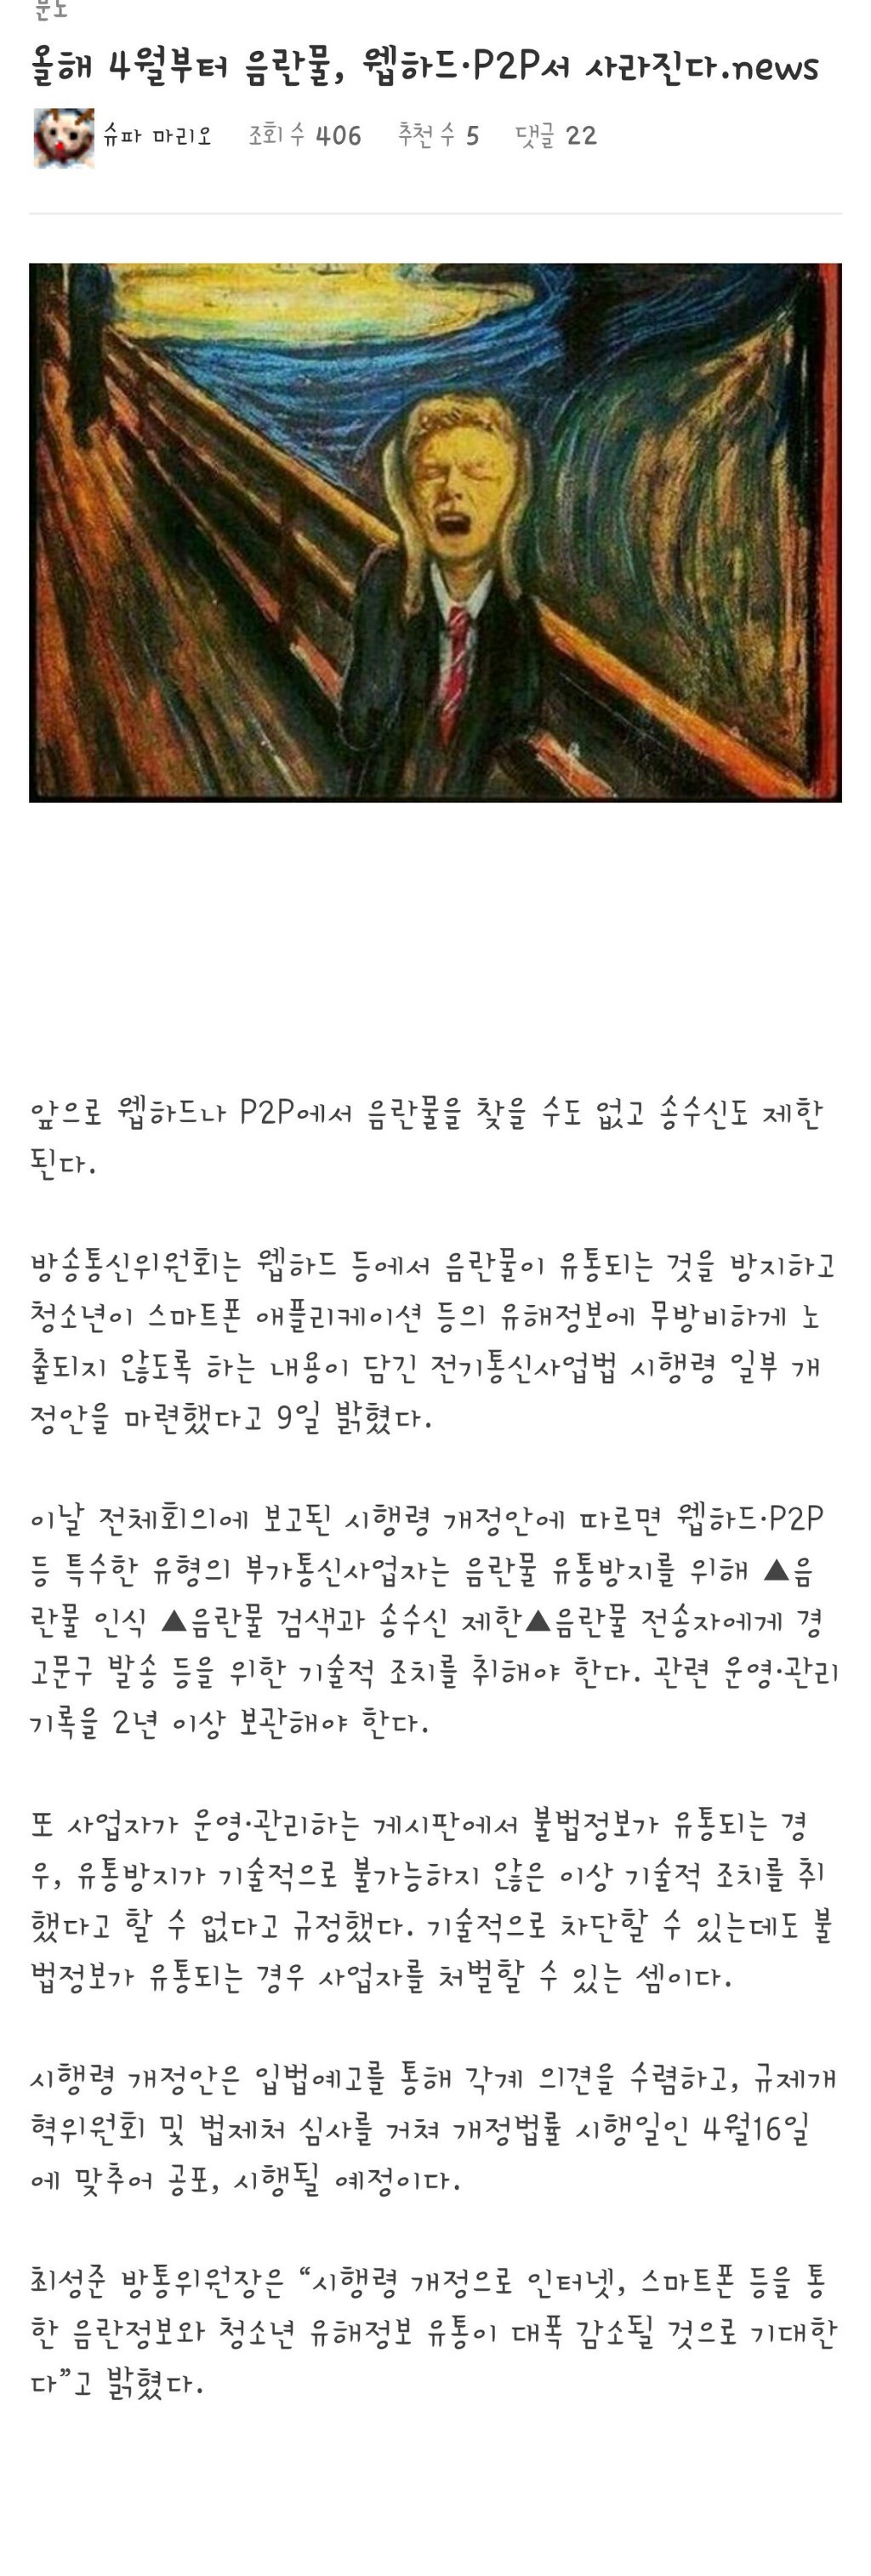 올해 4월부터 음란물, 웹하드·P2P서 사라진다.news
슈파 마리오 조회 수 406 추천 수 5 댓글 22
앞으로 웹하드나 P2P에서 음란물을 찾을 수도 없고 송수신도 제한
된다.
방송통신위원회는 웹하드 등에서 음란물이 유통되는 것을 방지하고
청소년이 스마트폰 애플리케이션 등의 유해정보에 무방비하게 노
출되지 않도록 하는 내용이 담긴 전기통신사업법 시행령 일부 개
정안을 마련했다고 9일 밝혔다.
이날 전체회의에 보고된 시행령 개정안에 따르면 웹하드·P2P
등 특수한 유형의 부가통신사업자는 음란물 유통방지를 위해 ▲음
란물 인식 ▲음란물 검색과 송수신 제한▲음란물 전송자에게 경
고문구 발송 등을 위한 기술적 조치를 취해야 한다. 관련 운영·관리
기록을 2년 이상 보관해야 한다.
또 사업자가 운영·관리하는 게시판에서 불법정보가 유통되는 경
우, 유통방지가 기술적으로 불가능하지 않은 이상 기술적 조치를 취
했다고 할 수 없다고 규정했다. 기술적으로 차단할 수 있는데도 불
법정보가 유통되는 경우 사업자를 처벌할 수 있는 셈이다.
시행령 개정안은 입법예고를 통해 각계 의견을 수렴하고, 규제개
혁위원회 및 법제처 심사를 거쳐 개정법률 시행일인 4월16일
에 맞추어 공포, 시행될 예정이다.
최성준 방통위원장은 “시행령 개정으로 인터넷, 스마트폰 등을 통
한 음란정보와 청소년 유해정보 유통이 대폭 감소될 것으로 기대한
다”고 밝혔다.